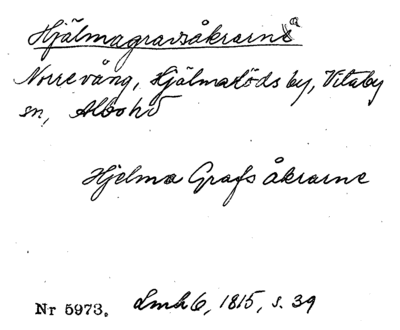 Hjälmagravsåkrarna
Norrevång, Hjälmaröds by, Vitaby
sn, Albo hd
Hjelma Grafs åkrarne
Nr 5973. Lmh 6, 1815, s. 39